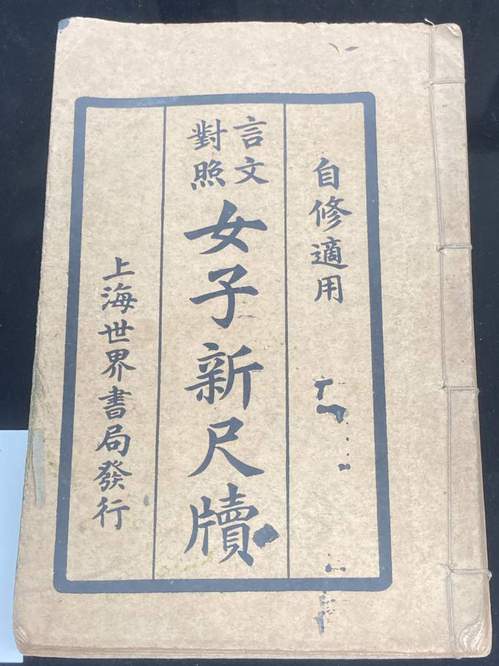 自修適用
言文對照
女子新尺牘
上海世界書局發行